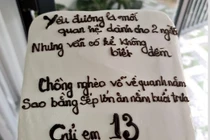 Yêu đương là mối
quan hệ dành cho 2 người
Nhưng vẫn có thể không
biết đếm
Chồng nghèo vỗ về quanh năm
Sao bằng sếp lớn ăn nằm buổi trưa
Gửi em 13